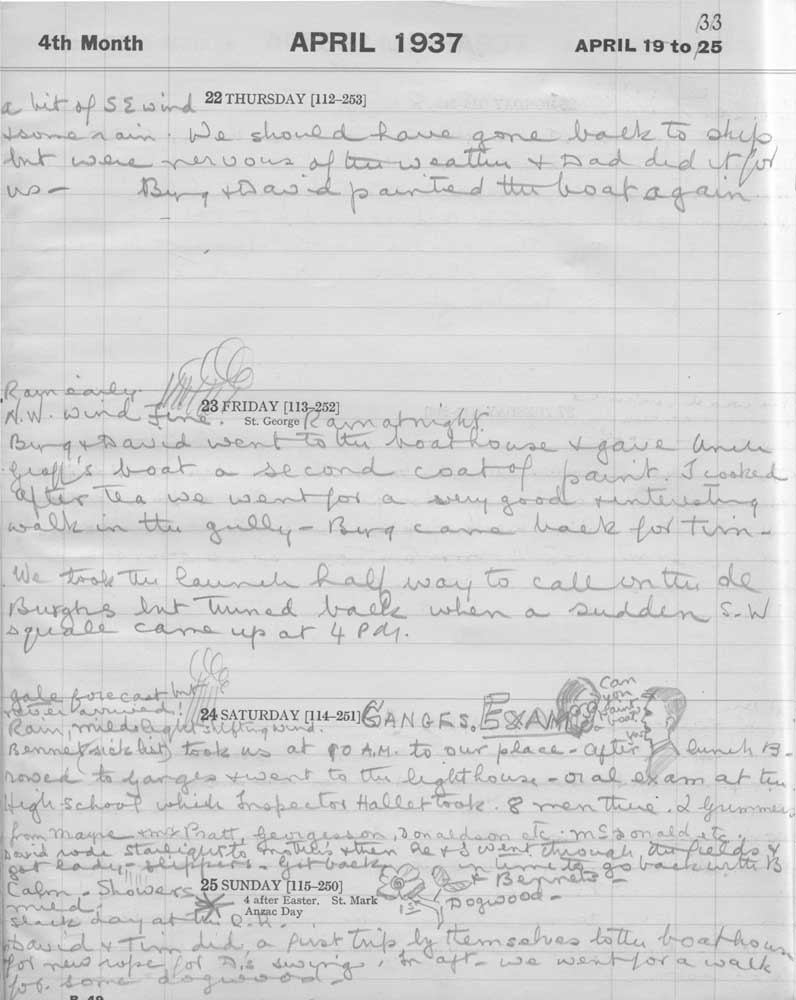 33
4th Month APRIL 1937 APRIL 19 to 25
a bit of S E wind 22 THURSDAY [112–253]
& some rain. We should have gone back to ship
but were nervous of the weather & Dad did it for
us – Burg & David painted the boat again
Rain early.
N.W. wind Fine. 23 FRIDAY [113–252]
St. George Rain at night.
Burg & David went to the boathouse & gave Uncle
Geoff's boat a second coat of paint. I cooked
After Tea we went for a very good & interesting
walk in the gully – Burg came back for Tim –
We took the launch half way to call on the de
Burghs but turned back when a sudden S.W
squall came up at 4 P.M.
gale forecast but
never arrived!
24 SATURDAY [114–251] GANGES. EXAM
Can you paint boat
yes
Rain, mild light shifting wind.
Bennet (sick list) took us at 10 A.M. to our place – After lunch B –
rowed to Ganges & went to the lighthouse – oral exam at the
High-school which Inspector Hallet took. 8 men there. 2 Grimmer
from Mayne & Mr Pratt, Georgeson, Donaldson etc. McDonald etc.
David rode Starlight to Mother's & then he & I went through the fields &
got lady-slippers. Got back in time to go back with B
Bennets –
Calm – Showers 25 SUNDAY [115–250]
mild. 4 after Easter. St. Mark
Anzac Day
1st Dogwood –
slack day at the
David & Tim did a first trip by themselves to the boathouse
for new rope for D's swing. In aft – we went for a walk
for some dogwood –
R 49